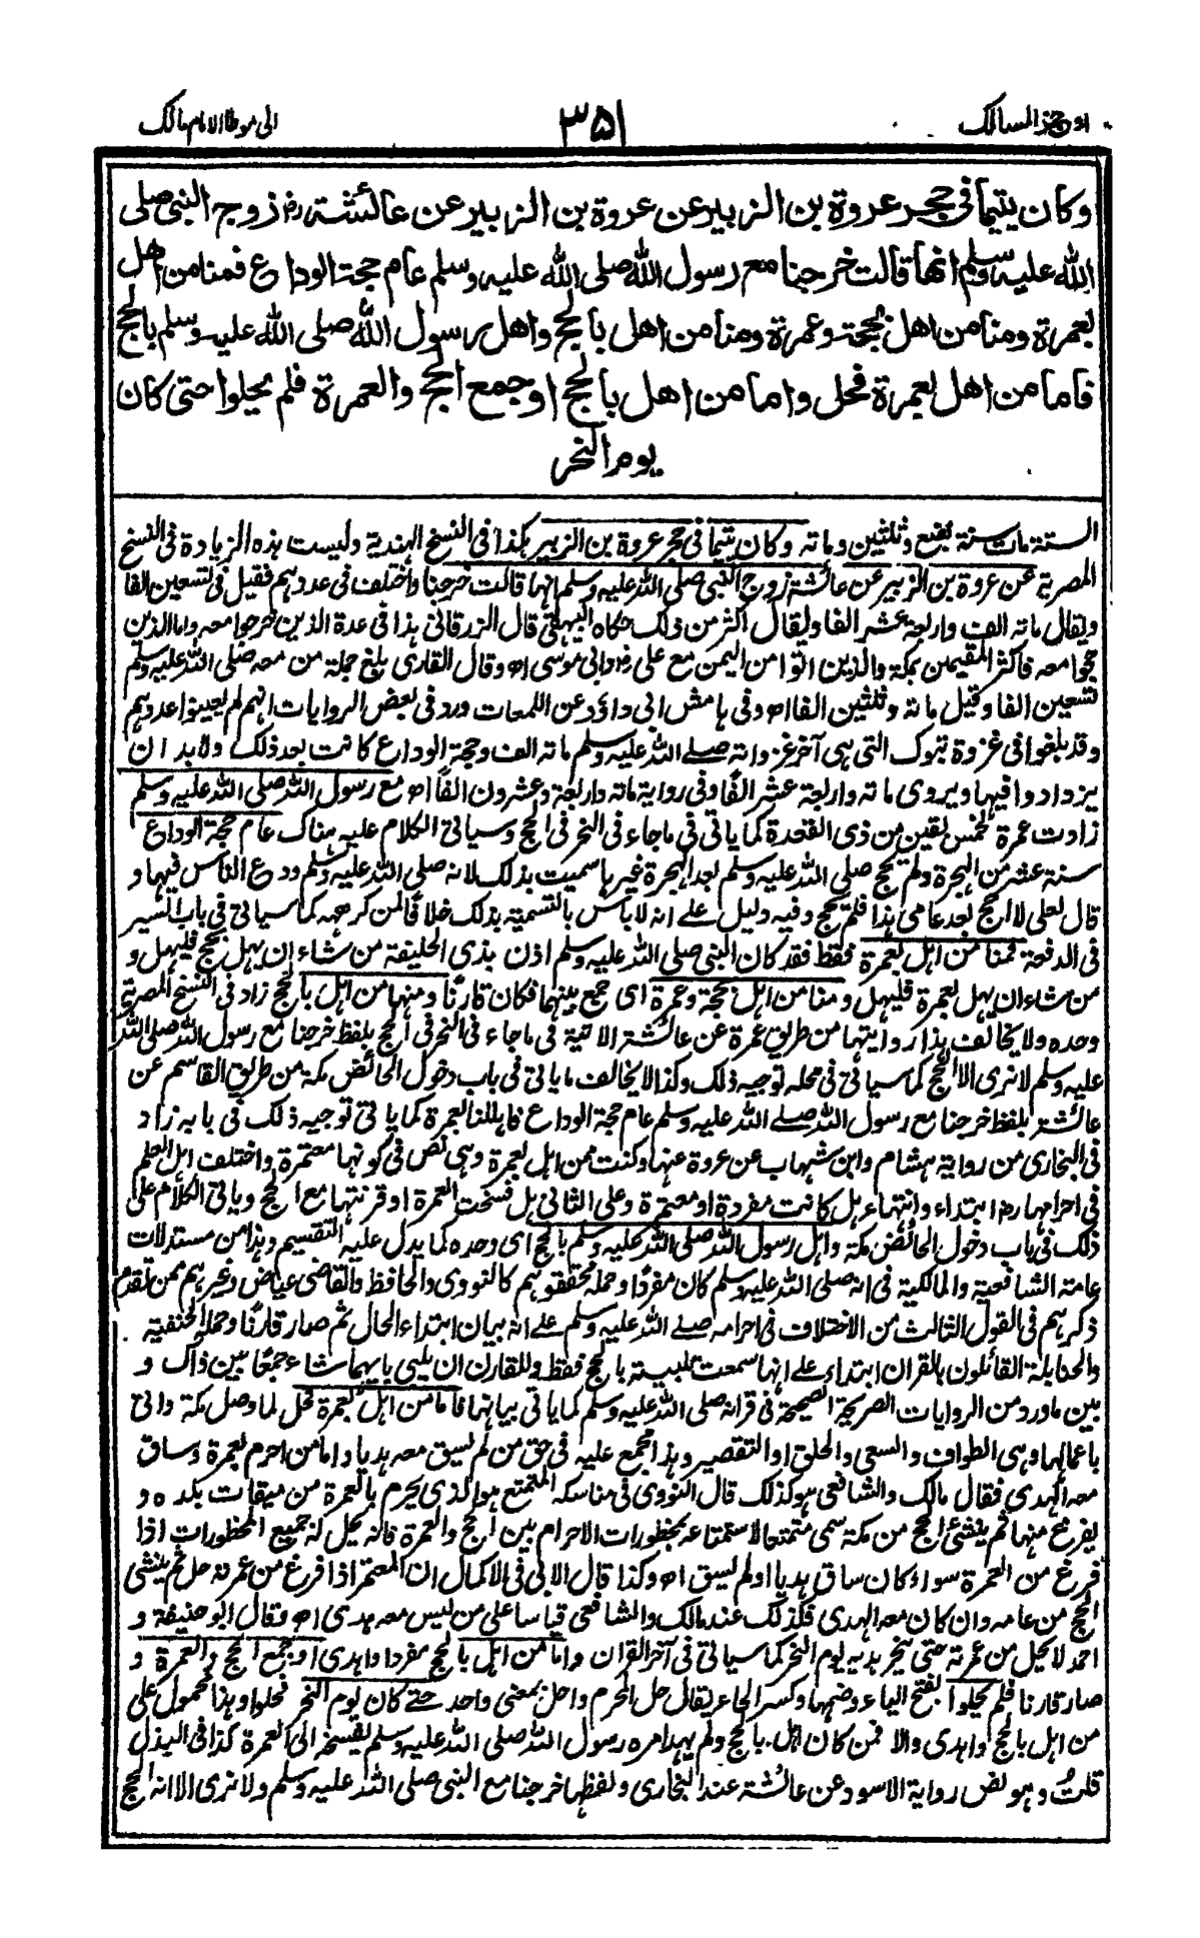 اوجز المسالك
٣٥١
الى موطا الامام مالك
وكان يتيما في حجر عروة بن الزبير عن عروة بن الزبير عن عائشة رض زوج النبي صلى
الله عليه وسلم انها قالت خرجنا مع رسول الله صلى الله عليه وسلم عام حجة الوداع فمنا من اهل
بعمرة ومنا من اهل بحجة وعمرة ومنا من اهل بالحج واهل رسول الله صلى الله عليه وسلم بالحج
فاما من اهل بعمرة فحل واما من اهل بالحج او جمع الحج والعمرة فلم يحلوا حتى كان
يوم النحر
الستة مات سنة بضع وثلثين ومائة وكان يتيما في حجر عروة بن الزبير هكذا في النسخ الهندية وليست هذه الزيادة في النسخ
المصرية عن عروة بن الزبير عن عائشة زوج النبي صلى الله عليه وسلم انها قالت خرجنا واختلف في عددهم فقيل في تسعين الفا
ويقال مائة الف واربعة عشر الفا ويقال اكثر من ذلك حكاه البيهقي قال الزرقاني هذا في عدة الذين خرجوا معه واما الذين
حجوا معه فاكثر المقيمين بمكة والذين اتوا من اليمن مع علي رض وابي موسى اه وقال القاري بلغ جملة من معه صلى الله عليه وسلم
تسعين الفا وقيل مائة وثلثين الفا اه وفي هامش ابي داؤد عن اللمعات ورد في بعض الروايات انهم لم يعينوا عددهم
وقد بلغوا في غزوة تبوك التي هي آخر غزواته صلى الله عليه وسلم مائة الف وحجة الوداع كانت بعد ذلك ولابد ان
يزدادوا فيها ويروى مائة واربعة عشر الفا وفي رواية مائة واربعة وعشرون الفا اه مع رسول الله صلى الله عليه وسلم
زادت عمرة لخمس بقين من ذي القعدة كما ياتي في ما جاء في النحر في الحج وسياتي الكلام عليه هناك عام حجة الوداع
سنة عشر من الهجرة ولم يحج صلى الله عليه وسلم بعد الهجرة غيرها سميت بذلك لانه صلى الله عليه وسلم ودع الناس فيها و
قال لعلي لا احج بعد عامي هذا فلم يحج وفيه دليل على انه لا باس بالتسمية بذلك خلافا لمن كرهه كما سياتي في باب السير
في الدفعة فمنا من اهل بعمرة فقط فقد كان النبي صلى الله عليه وسلم اذن بذي الحليفة من شاء ان يهل بحج فليهل و
من شاء ان يهل بعمرة فليهل ومنا من اهل بحجة وعمرة اى جمع بينهما فكان قارنا ومنها من اهل بالحج زاد في النسخ المصرية
وحده ولا يخالف هذا روايتها من طريق عمرة عن عائشة الاتية في ما جاء في النحر في الحج بلفظ خرجنا مع رسول الله صلى الله
عليه وسلم لا نرى الا الحج كما سياتي في محله توجيه ذلك وكذا لا يخالف ما ياتي في باب دخول الحائض مكة من طريق القاسم عن
عائشة بلفظ خرجنا مع رسول الله صلى الله عليه وسلم عام حجة الوداع فاهللنا بعمرة كما ياتي توجيه ذلك في بابه زاد
في البخاري من رواية هشام وابن شهاب عن عروة عنها وكنت ممن اهل بعمرة وهي نص في كونها معتمرة واختلف اهل العلم
في احرامها رض ابتداء وانتهاء هل كانت مفردة او معتمرة وعلى الثاني هل فسخت العمرة او قرنتها مع الحج وياتي الكلام على
ذلك في باب دخول الحائض مكة واهل رسول الله صلى الله عليه وسلم بالحج اى وحده كما يدل عليه التقسيم وهذا من مستدلات
عامة الشافعية والمالكية في انه صلى الله عليه وسلم كان مفردا وحمله محققوهم كالنووي والحافظ والقاضي عياض وغيرهم ممن تقدم
ذكرهم في القول الثالث من الاختلاف في احرامه صلى الله عليه وسلم على انه بيان ابتداء الحال ثم صار قارنا وحمله الحنفية
والحنابلة القائلون بالقران ابتداء على انها سمعت تلبيته بالحج فقط وللقارن ان يلبي بايهما شاء جمعا بين ذاك و
بين ماورد من الروايات الصريحة الصحيحة في قرانه صلى الله عليه وسلم كما ياتي بيانها فاما من اهل بعمرة فحل لما وصل مكة واتى
باعمالها وهي الطواف والسعي والحلق او التقصير وهذا مجمع عليه في حق من لم يسق معه هديا واما من احرم بعمرة وساق
معه الهدي فقال مالك والشافعي هو كذلك قال النووي في مناسكه المتمتع هو الذي يحرم بالعمرة من ميقات بلده و
يفرغ منها ثم ينشئ الحج من مكة سمي متمتعا لاستمتاعه بمحظورات الاحرام بين الحج والعمرة فانه يحل له جميع المحظورات اذا
فرغ من العمرة سواء كان ساق هديا او لم يسق اه وكذا قال الابي في الاكمال ان المعتمر اذا فرغ من عمرته حل ثم ينشئ
الحج من عامه وان كان معه الهدي فكذلك عند مالك والشافعي قياسا على من ليس معه هدي اه وقال ابو حنيفة و
احمد لا يحل من عمرته حتى ينحر هديه يوم النحر كما سياتي في آخر القران واما من اهل بالحج مفردا واهدى او جمع الحج والعمرة و
صار قارنا فلم يحلوا بفتح الياء وضمها وكسر الحاء يقال حل المحرم واحل بمعنى واحد حتى كان يوم النحر فحلوا وهذا محمول على
من اهل بالحج واهدى والا فمن كان اهل بالحج ولم يهد امره رسول الله صلى الله عليه وسلم بفسخه الى العمرة كذا في البذل
قلت وهو نص رواية الاسود عن عائشة عند البخاري ولفظها خرجنا مع النبي صلى الله عليه وسلم ولا نرى الا انه الحج